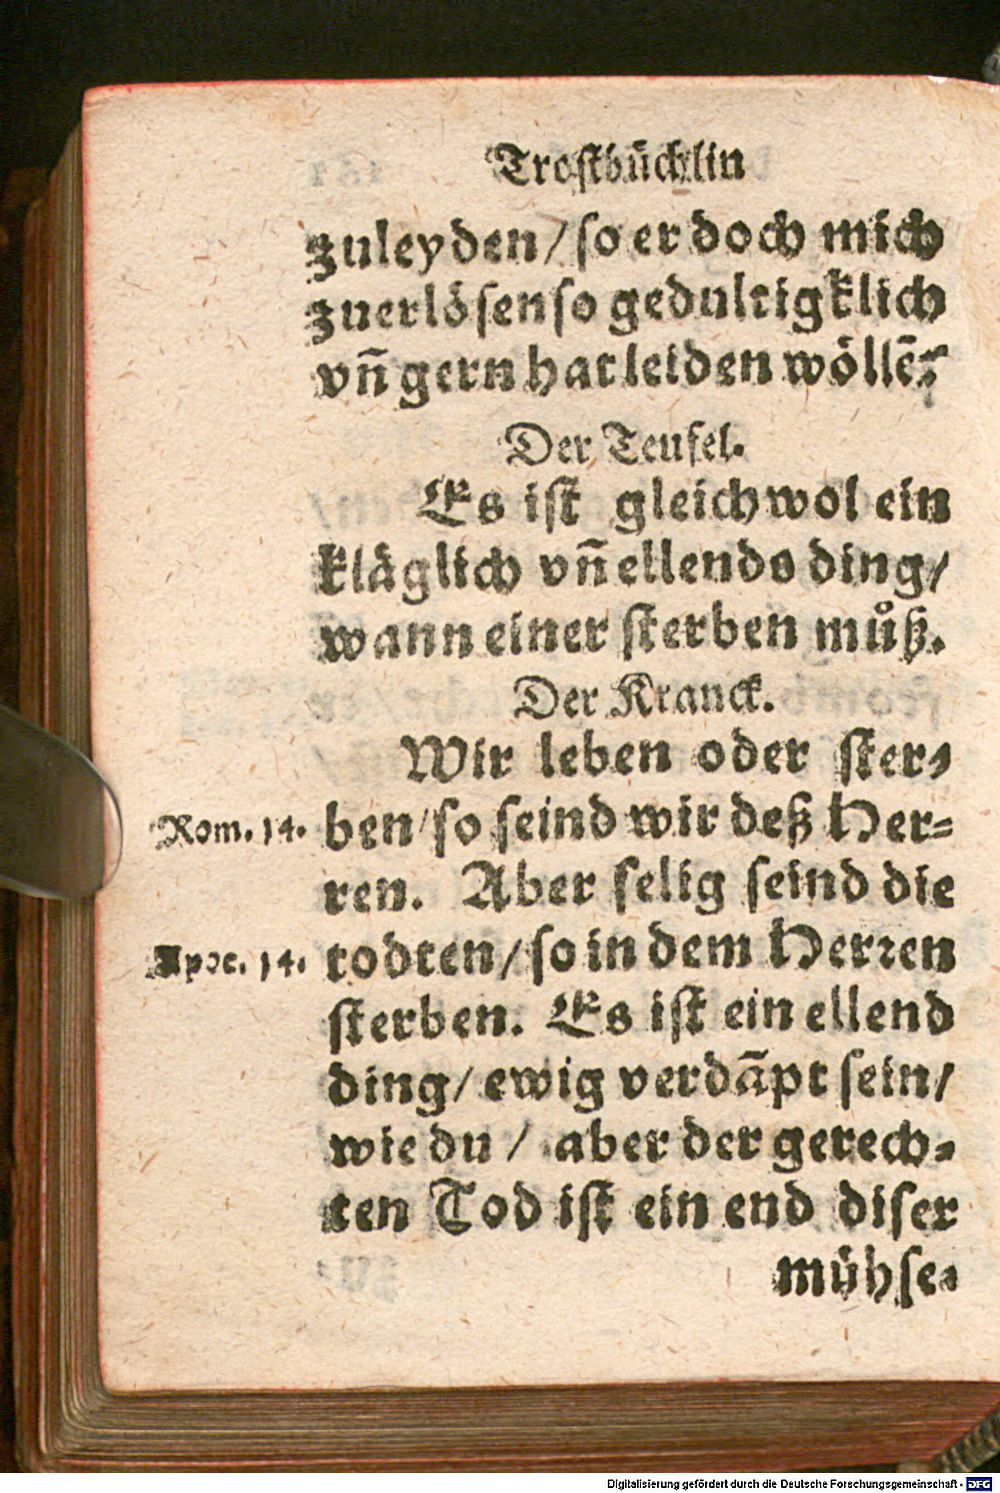 Trostbüchlin
zuleyden / so er doch mich
zuerlösen so gedultigklich
vñ gern hat leiden wöllē?
Der Teufel.
Es ist gleichwol ein
kläglich vñ ellends ding /
wann einer sterben můß.
Der Kranck.
Wir leben oder ster-
Rom. 14. ben / so seind wir deß Her-
ren. Aber selig seind die
Apoc. 14. todten / so in dem Herren
sterben. Es ist ein ellend
ding / ewig verdãpt sein /
wie du / aber der gerech-
ten Tod ist ein end diser
mühse-
Digitalisierung gefördert durch die Deutsche Forschungsgemeinschaft - DFG